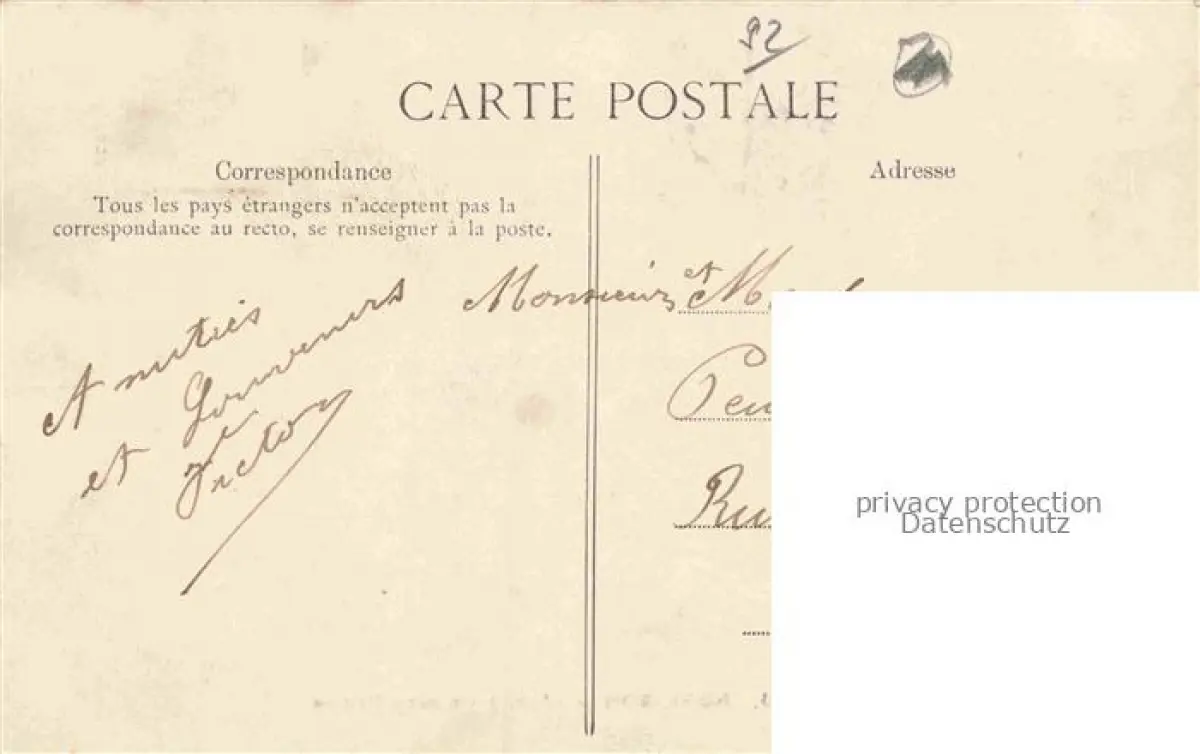 92
CARTE POSTALE
Correspondance
Tous les pays étrangers n'acceptent pas la
correspondance au recto, se renseigner à la poste.
Adresse
Amitiés
et Souvenirs
Victory
Monsieur et M
Peu
Ru
privacy protection
Datenschutz